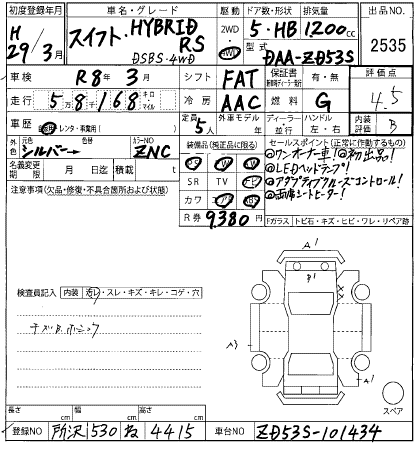 初度登録年月 車名・グレード 駆動 ドア数・形状 排気量 出品NO.
H 29/3月 スイフト HYBRID RS DSBS・4WD 2WD 4WD 5・HB 1200cc 2535
型式 DAA-ZD53S
車検 R8年3月 シフト FAT 保証書 有・無 評価点
走行 5万8千168 キロ マイル 冷房 AAC 燃料 G 4.5
車歴 自家用・レンタ・事業用 定員 5人 外車モデル 年 ディーラー 並行 ハンドル 左・右 内装評価 B
外色 元色 シルバー 色替 カラーNO ZNC 装備品(純正品に限る) セールスポイント(正常に作動するもの)
◎ワンオーナー車! ◎初出品!
◎LEDヘッドランプ!
名義変更期限 月 日迄 積載 t SR TV
◎アダプティブクルーズコントロール!
注意事項(欠品・修復・不具合箇所および状態) カワ
◎両席シートヒーター!
R券 9,380円 Fガラス トビ石・キズ・ヒビ・ワレ・リペア跡
A1
B1
検査員記入 内装 汚レ・スレ・キズ・キレ・コゲ・穴
A3
A1
スペア
長さ cm 幅 cm 高さ cm
登録NO 所沢 530 ね 4415 車台NO ZD53S-101434